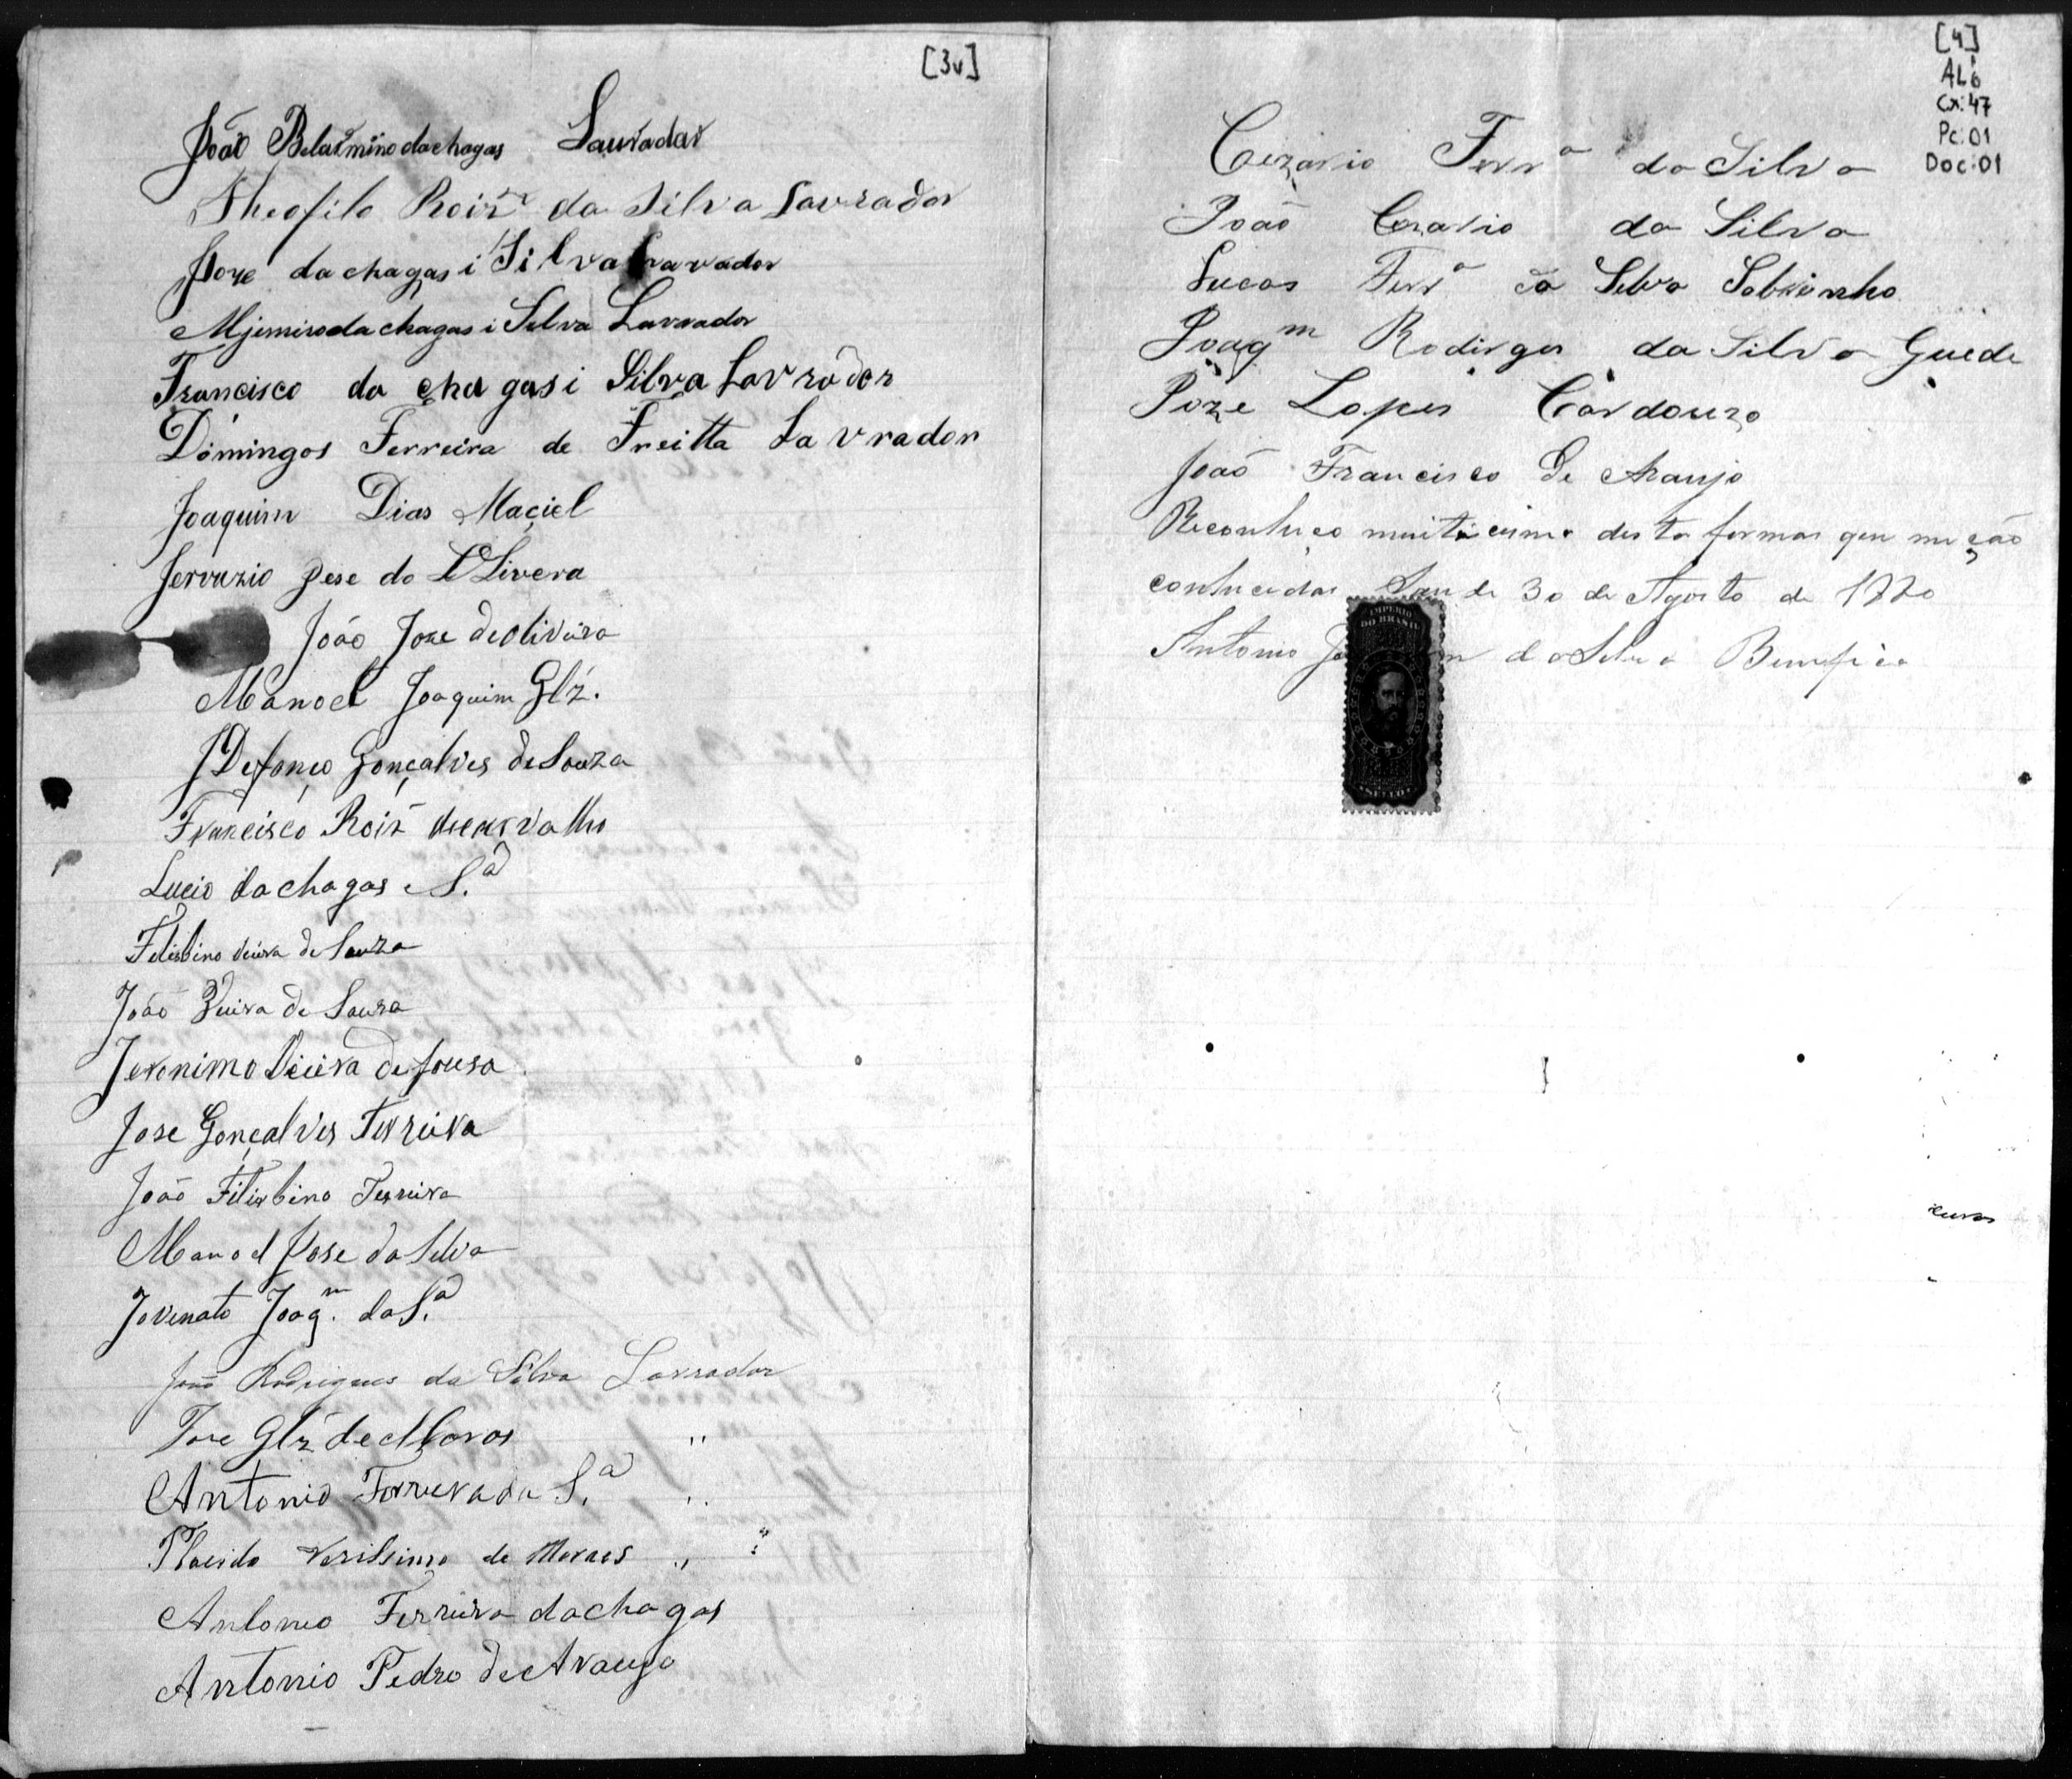 [3v]
João Belarmino da chagas Lavrador
Theofilo Roiz da Silva Lavrador
Joze da chagas i Silva Lavrador
da chagas i Silva Lavrador
Francisco da chagas i Silva Lavrador
Domingos Ferreira de Freitta Lavrador
Joaquim Dias Maciel
Jervazio Jese do Livera
João Joze de olivéira
Manoel Joaquim Glz.
Gonçalves de Souza
Francisco Roiz de carvalho
Lucio da chagas S.ª
Felisbino Vieira de Souza
João Vieira de Souza
Jeronimo Vieira de Sousa
Jose Gonçalves Ferreira
João Filisbino Ferreira
Manoel Jose da Silva
Jovenato Joaq.m da S.ª
João Rodrigues da Silva Lavrador
Joze Glz de Moras "
Antonio Ferreira da S.ª "
Placido Verissimo de Moraes " "
Antonio Ferreira da chagas
Antonio Pedro de Araujo
[4]
AL6
Cx:47
Pc:01
Doc:01
Cezario Ferrª da Silva
João Cezario da Silva
Lucas Ferrª da Silva Sobrinho
Joaqm Rodirges da Silva Guede
Joze Lopes Cardouzo
João Francisco de Araujo
Reconheço desta formas que me são
conhecidas 30 de Agosto de
Antonio da Silva
IMPERIO
DO BRASIL
SELLO